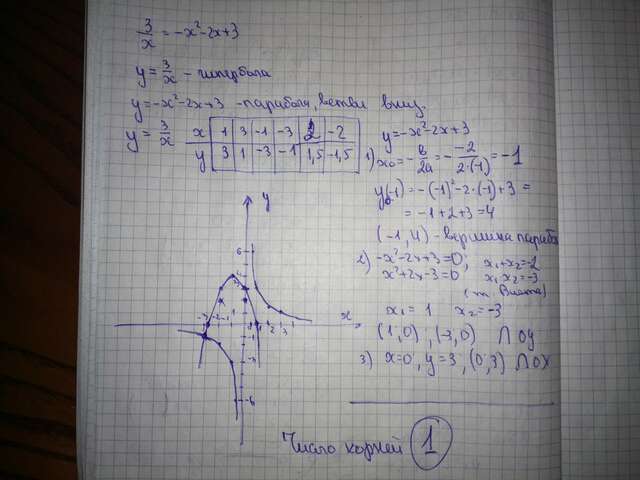 3/x = -x²-2x+3
y = 3/x - гипербола
y = -x²-2x+3 - парабола, ветви вниз.
y = 3/x
x | 1 | 3 | -1 | -3 | 2 | -2
y | 3 | 1 | -3 | -1 | 1,5 | -1,5
y = -x²-2x+3
1) x₀ = -b/2a = - -2/2·(-1) = -1
y(-1) = -(-1)²-2·(-1)+3 =
= -1+2+3 = 4
(-1, 4) - вершина параб
2) -x²-2x+3=0
x²+2x-3=0; x₁+x₂=-2
x₁x₂=-3
(т. Виета)
x₁ = 1 x₂ = -3
(1,0), (-3,0) ∩ OY
3) x=0, y=3, (0,3) ∩ OX
y
x
Число корней 1